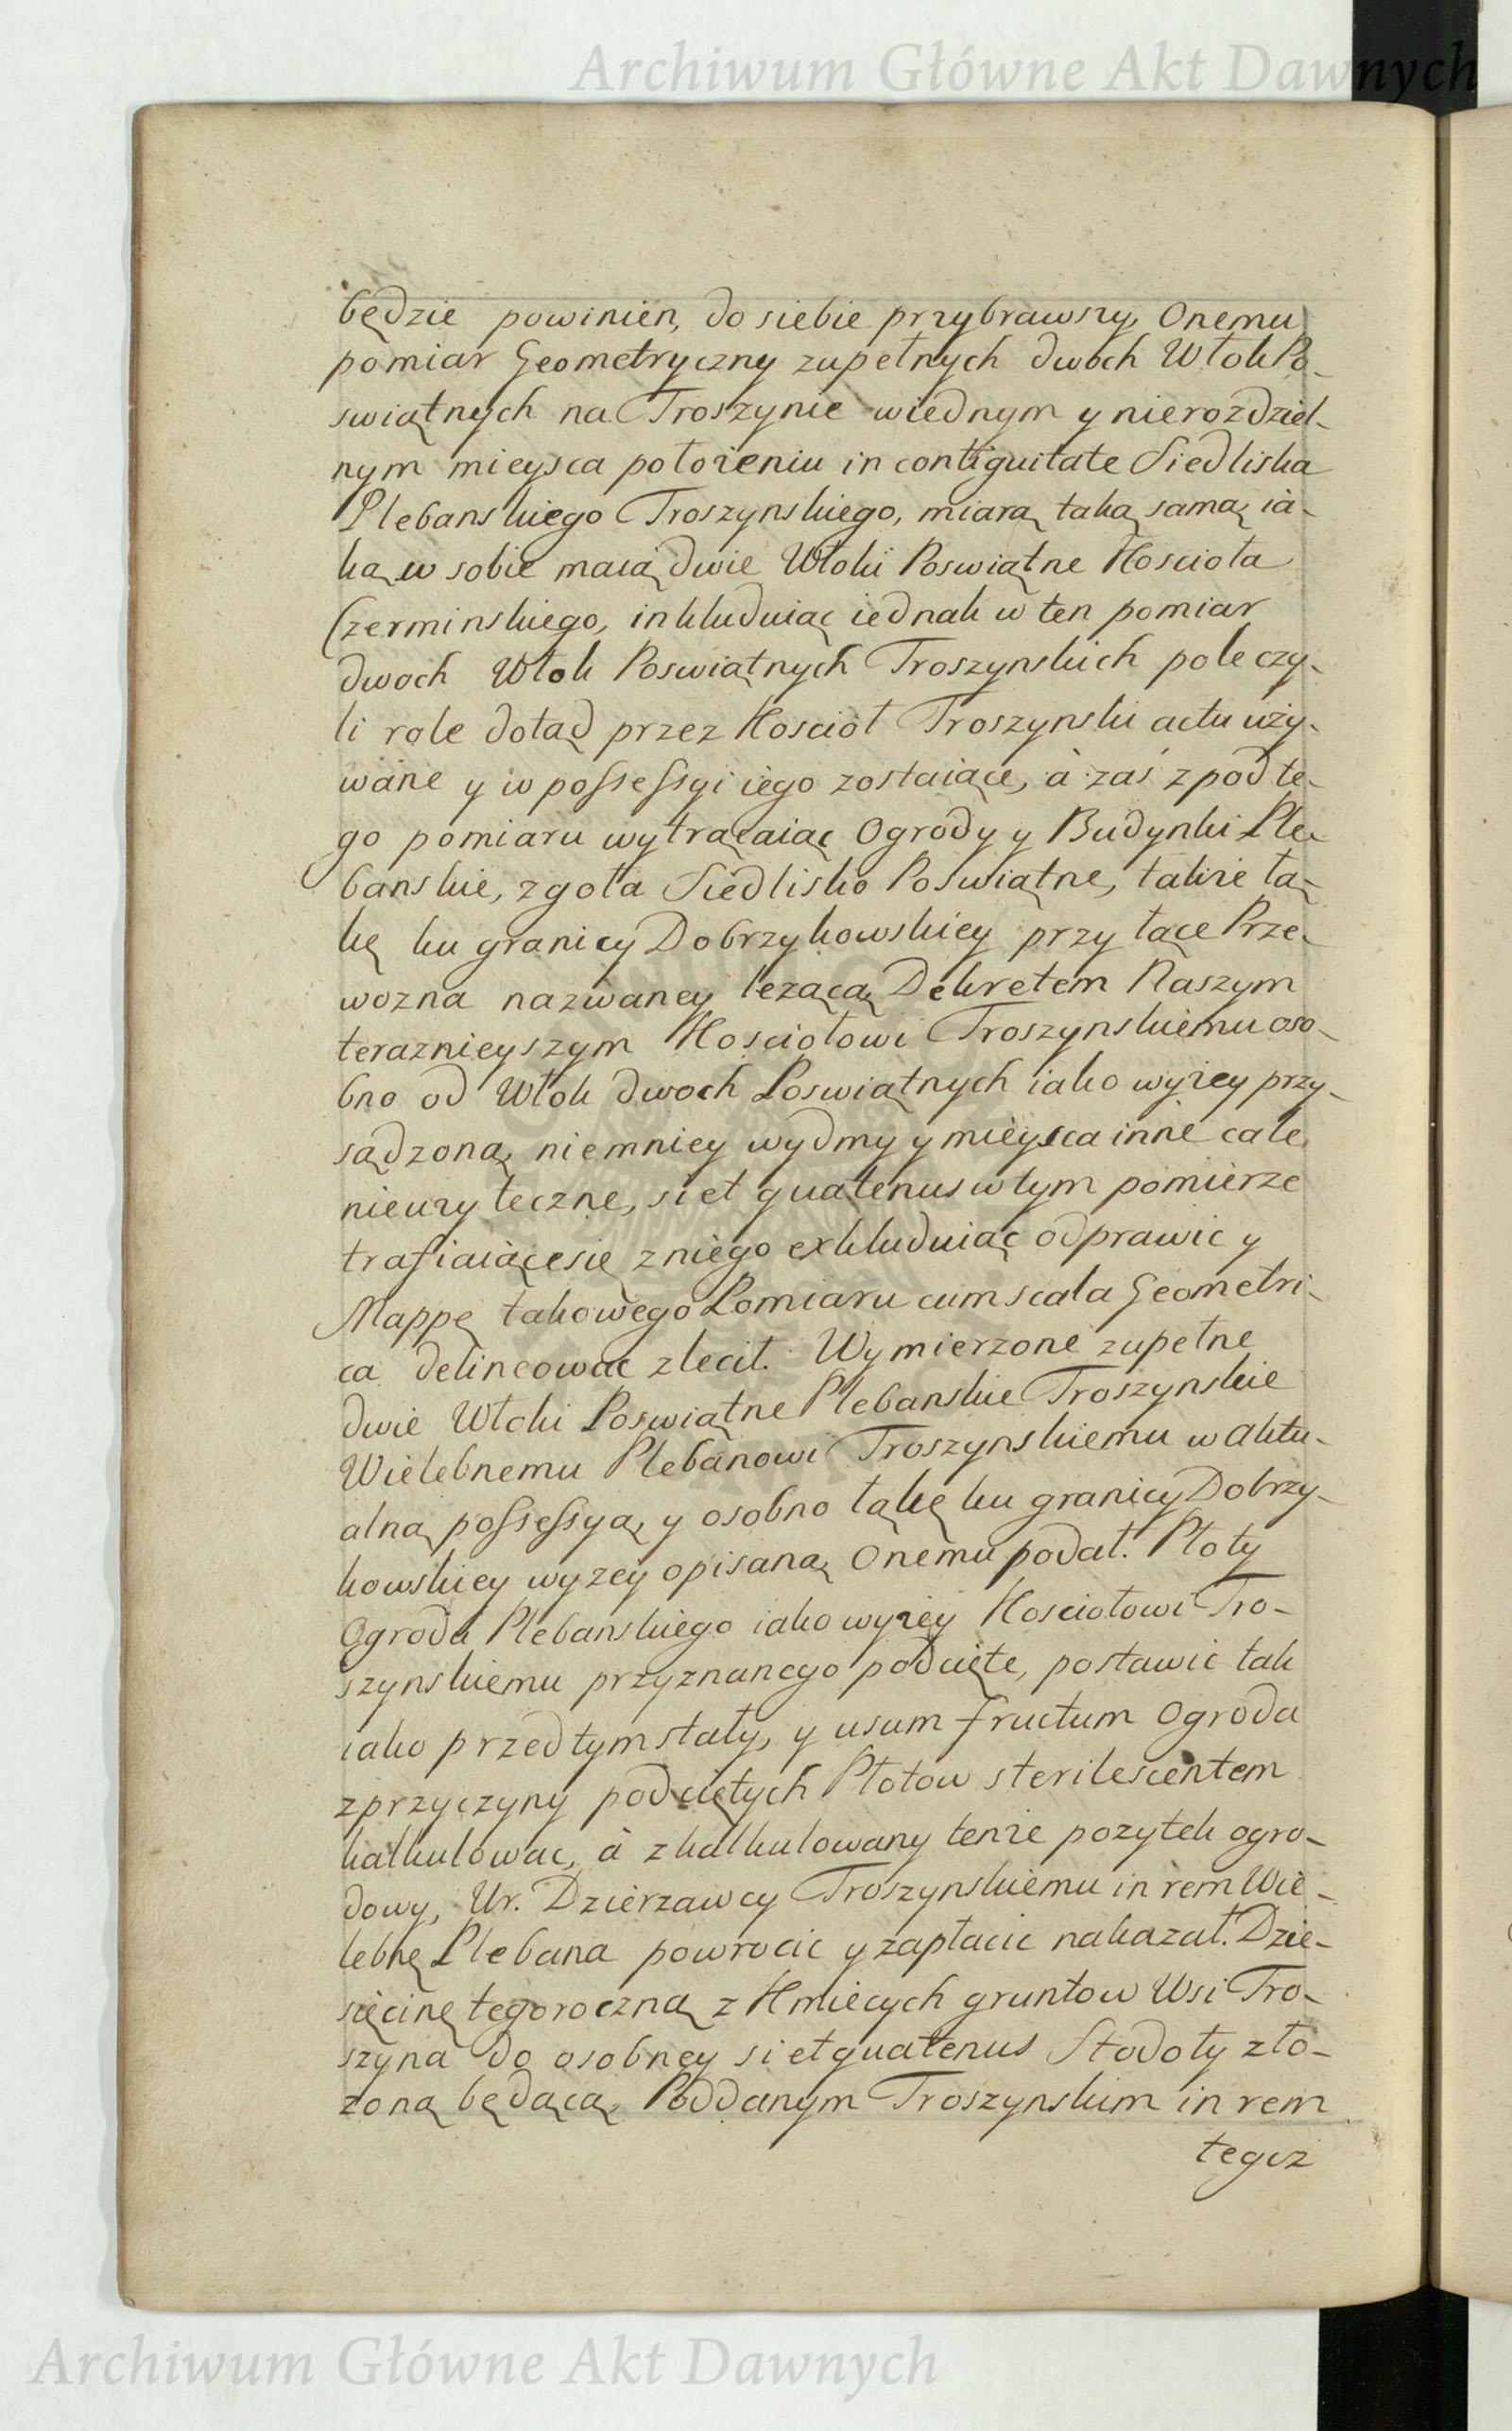 Archiwum Główne Akt Dawnych
będzie powinien, do siebie przybrawszy, Onemu
pomiar Geometryczny zupełnych dwoch Włok Po-
swiątnych na Troszynie wiednym y nierozdziel-
nym mieysca położeniu in contiguitate Siedliska
Plebanskiego Troszynskiego, miarą taką samą ia-
ką w sobie maią dwie Włoki Poswiątne Koscioła
Czerminskiego, inkluduiąc iednak w ten pomiar
dwoch Włok Poswiątnych Troszynskich pole czy-
li role dotąd przez Koscioł Troszynski actu uży-
wane y w possessyi iego zostaiące, à zaś z pod te-
go pomiaru wytrącaiąc Ogrody y Budynki Ple-
banskie, zgoła Siedlisko Poswiątne, takze łą-
kę ku granicy Dobrzykowskiey przy łące Prze-
wozna nazwaney lezącą Dekretem Naszym
teraznieyszym Kosciołowi Troszynskiemu oso-
bno od Włok dwoch Poswiątnych iako wyżey przy-
sądzoną, niemniey wydmy y mieysca inne cale
nieużyteczne, si et quatenus w tym pomierze
trafiaiące się z niego exkluduiąc odprawic y
Mappę takowego Pomiaru cum scala Geometri-
ca delineowac zlecił. Wymierzone zupełne
dwie Włoki Poswiątne Plebanskie Troszynskie
Wielebnemu Plebanowi Troszynskiemu w aktu-
alną possessyą, y osobno łąkę ku granicy Dobrzy-
kowskiey wyzey opisaną Onemu podał. Płoty
Ogrodu Plebanskiego iako wyżey Kosciołowi Tro-
szynskiemu przyznanego podcięte, postawic tak
iako przedtym stały, y usum fructum Ogroda
z przyczyny podciętych Płotow sterilescentem
kalkulowac, à zkalkulowany tenże pozytek ogro-
dowy, Ur. Dzierzawcy Troszynskiemu in rem Wie-
lebnę Plebana powrocic y zapłacic nakazał. Dzie-
sięcinę tegoroczną z Kmiecych gruntow Wsi Tro-
szyna do osobney si et quatenus Stodoły zło-
zoną będącą, Poddanym Troszynskim in rem
tegoz
Archiwum Główne Akt Dawnych